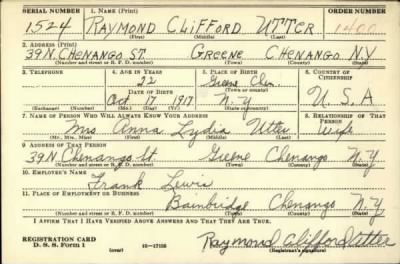 SERIAL NUMBER 1. NAME (Print) ORDER NUMBER
1524 RAYMOND CLIFFORD UTTER 1400
(First) (Middle) (Last)
2. ADDRESS (Print)
39 N. CHENANGO ST. GREENE CHENANGO N.Y.
(Number and street or R. F. D. number) (Town) (County) (State)
3. TELEPHONE 4. AGE IN YEARS 5. PLACE OF BIRTH 6. COUNTRY OF CITIZENSHIP
Greene Chen.
DATE OF BIRTH (Town or county)
Oct 7 1917 N.Y. U.S.A
(Exchange) (Number) (Mo.) (Day) (Yr.) (State or country)
7. NAME OF PERSON WHO WILL ALWAYS KNOW YOUR ADDRESS 8. RELATIONSHIP OF THAT PERSON
Mrs Anna Lydia Utter Wife
(Mr., Mrs., Miss) (First) (Middle) (Last)
9. ADDRESS OF THAT PERSON
39 N. Chenango St. Greene Chenango N.Y.
(Number and street or R. F. D. number) (Town) (County) (State)
10. EMPLOYER'S NAME
Frank Lewis
11. PLACE OF EMPLOYMENT OR BUSINESS
Bainbridge Chenango N.Y.
(Number and street or R. F. D. number) (Town) (County) (State)
I AFFIRM THAT I HAVE VERIFIED ABOVE ANSWERS AND THAT THEY ARE TRUE.
REGISTRATION CARD
D. S. S. Form 1 (over) 16—17105 Raymond Clifford Utter
(Registrant's signature)